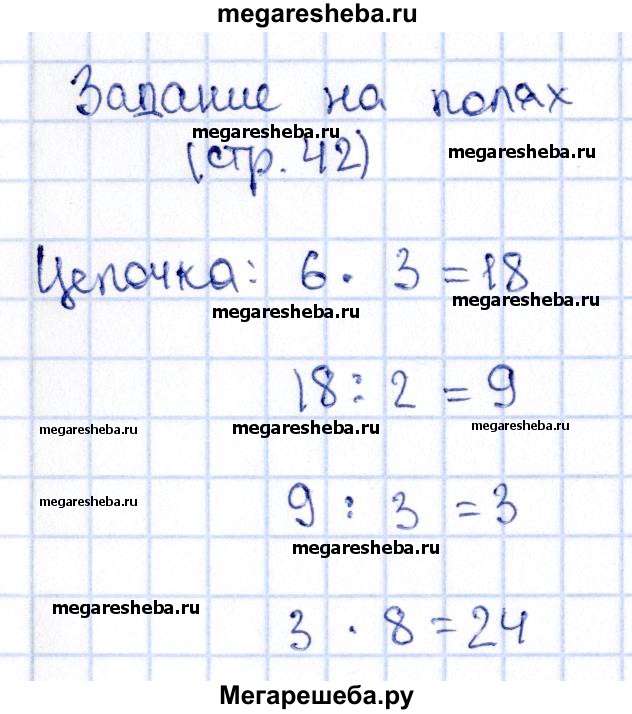 megaresheba.ru
Задание на полях
megaresheba.ru
(стр. 42)
megaresheba.ru
Цепочка: 6 · 3 = 18
megaresheba.ru
megaresheba.ru
18 : 2 = 9
megaresheba.ru
megaresheba.ru
megaresheba.ru
9 : 3 = 3
megaresheba.ru
megaresheba.ru
3 · 8 = 24
megaresheba.ru
Мегарешеба.ру